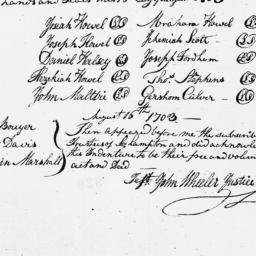 Josiah Howel LS Abraham Howel LS
Joseph Howel LS Jehemiah Scott LS
Daniel Halsey LS Joseph Fordham LS
Hezekiah Howel LS Tho.s Stephens LS
John Maltbie LS Gershom Culver LS
August 16th 1703
Bowyer Then appeared before me the subscrib
Davis Trustees of S:hampton and did acknowle
in Marshall this Indenture to be their free and volun
act and Deed
Test. John Wheeler Justice